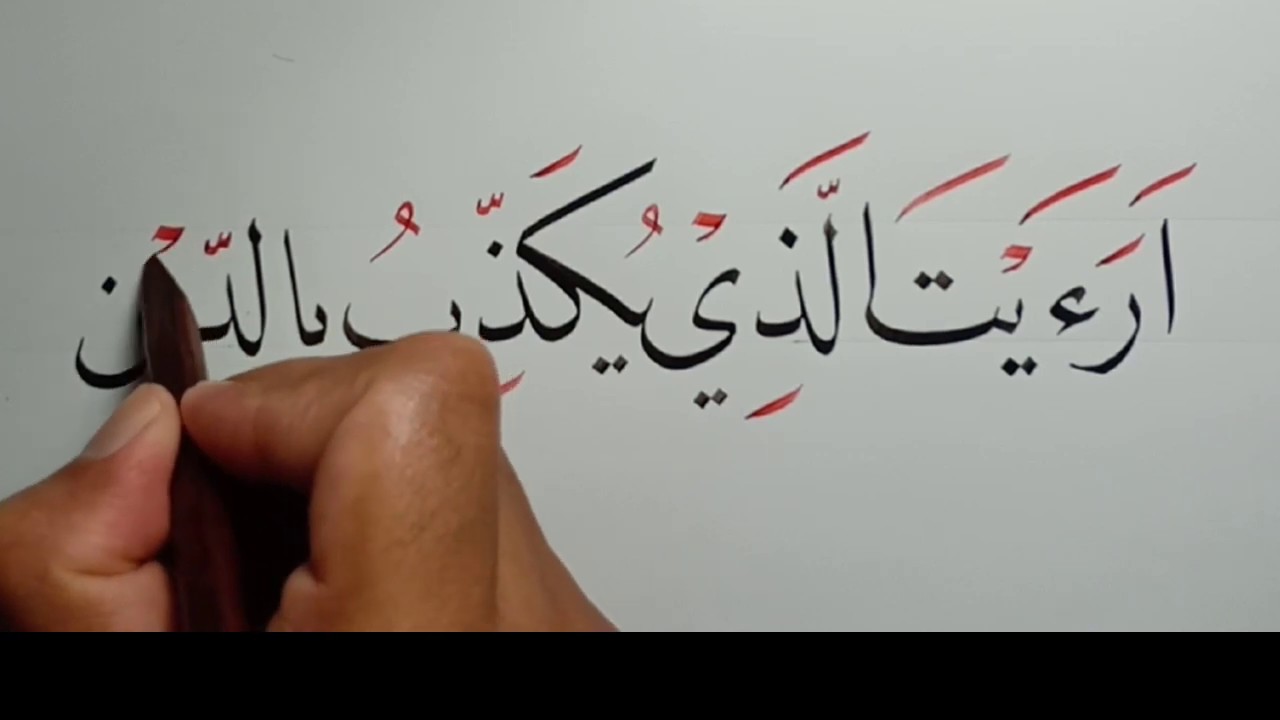 اَرَءَيْتَ الَّذِيْ يُكَذِّبُ بالدّيْن